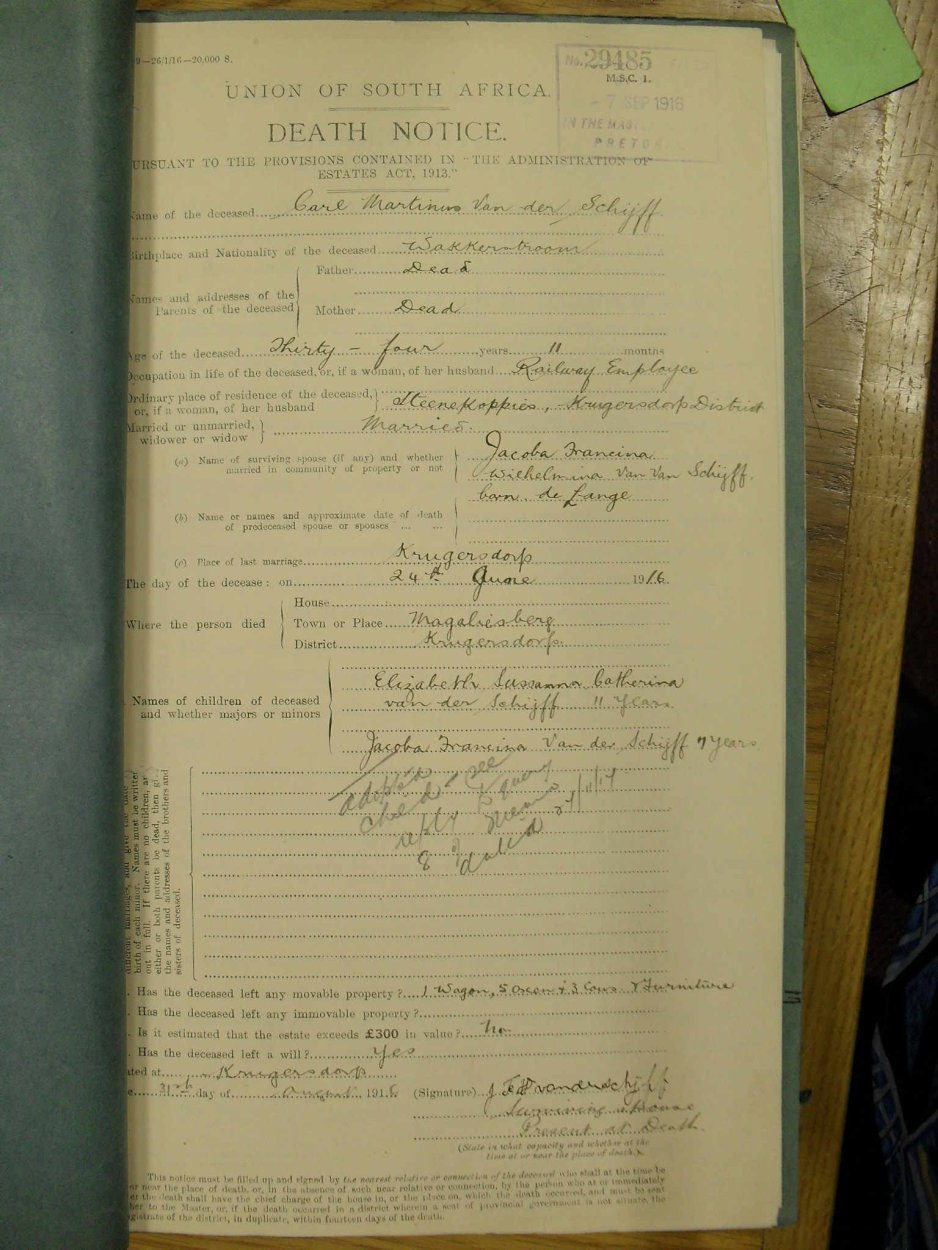 9—26/1/16—20,000 S.
No. 29485
M.S.C. 1.
- 7 SEP 1916
IN THE MAS
PRETO
UNION OF SOUTH AFRICA.
DEATH NOTICE.
URSUANT TO THE PROVISIONS CONTAINED IN "THE ADMINISTRATION OF
ESTATES ACT, 1913."
ame of the deceased Carl Martinus Van der Schijff
irthplace and Nationality of the deceased Wakkerstroom
Father Dead
ames and addresses of the
Parents of the deceased
Mother Dead
ge of the deceased Thirty - four years 11 months
ccupation in life of the deceased, or, if a woman, of her husband Railway Employee
rdinary place of residence of the deceased, or, if a woman, of her husband Steenekoppies, Krugersdorp District
arried or unmarried, widower or widow Married.
(a) Name of surviving spouse (if any) and whether married in community of property or not
Jacoba Francina
Wilhelmina Van Van Schijff.
born de Lange
(b) Name or names and approximate date of death
of predeceased spouse or spouses .... ...
(c) Place of last marriage Krugersdorp
The day of the decease: on 24th June 1916
House
Where the person died
Town or Place Magaliesberg
District Krugersdorp.
Names of children of deceased and whether majors or minors
Elizabeth Sussanna Catherina
van der Schijff 11 Years
Jacoba Francina Van der Schijff 7 years
adopted
child - see
reply to query
8 of
dated 27/11/17
different marriages, and give the date
birth of each minor. Names must be written
out in full. If there are no children, an
either or both parents be dead, then gi
the names and addresses of the brothers and
sisters of deceased.
. Has the deceased left any movable property? 1 Wagon, 5 Oxen & 3 Cows & Furniture
. Has the deceased left any immovable property?
. Is it estimated that the estate exceeds £300 in value? No
. Has the deceased left a will? Yes
ated at Krugersdorp
e 31st day of August, 1916
(Signature) J F W vanderschijff
Surviving Spouse
Present at Death.
(State in what capacity and whether at the
time at or near the place of death.)
This notice must be filled up and signed by the nearest relative or connection of the deceased who shall at the time be
or near the place of death, or, in the absence of such near relative or connection, by the person who at or immediately
er the death shall have the chief charge of the house in, or the place on, which the death occurred, and must be sent
her to the Master, or, if the death occurred in a district wherein a seat of provincial government is not situate, the
gistrate of the district, in duplicate, within fourteen days of the death.